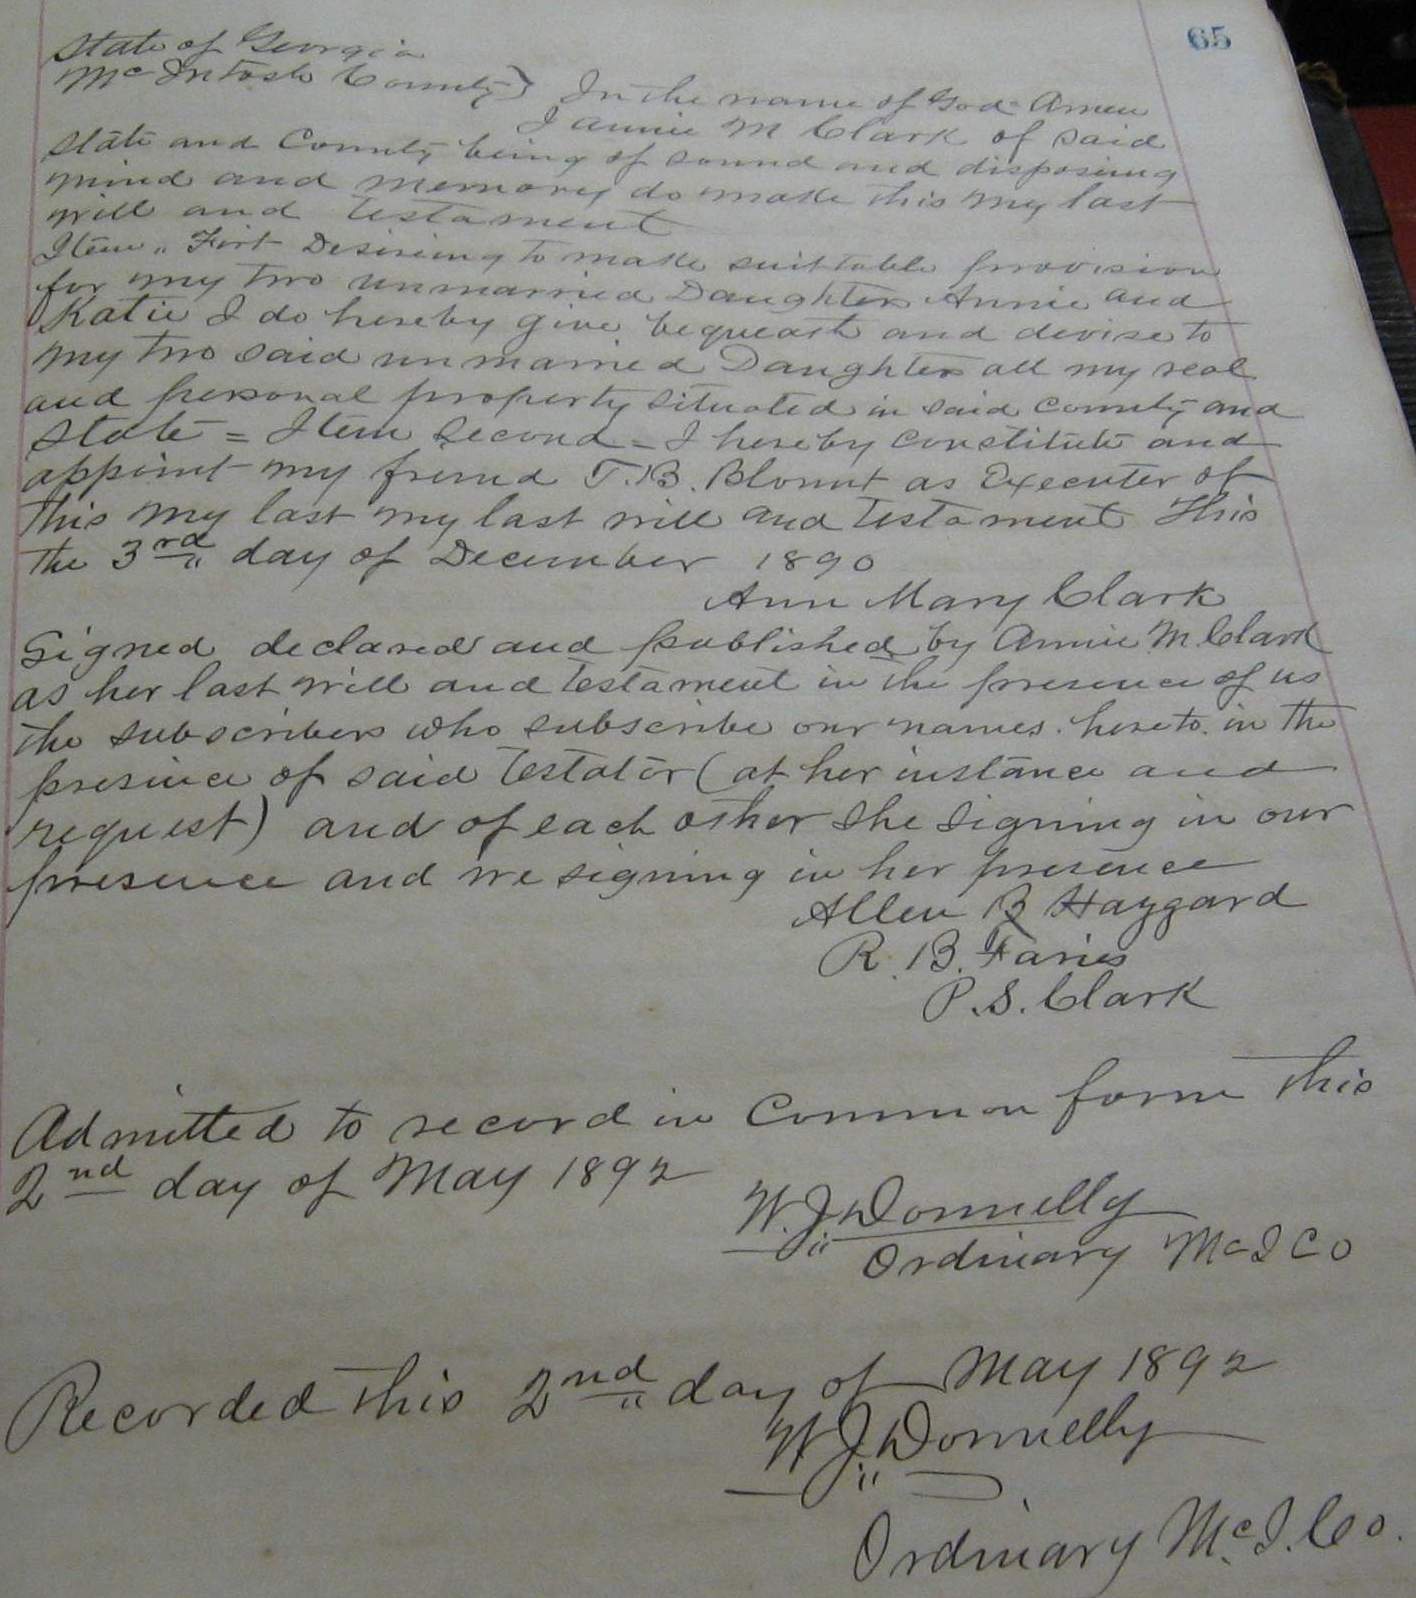 65
State of Georgia
McIntosh County} In the name of God Amen
I Annie M Clark of said
state and County being of sound and disposing
mind and memory do make this my last
will and testament
Item " First Desireing to make suittable provision
for my two unmarried Daughters Annie and
Katie I do hereby give bequeath and devise to
my two said unmarried Daughters all my real
and personal property situated in said County and
State = Item Second = I hereby constitute and
appoint my friend T. B. Blount as Executer of
this my last my last will and testament This
the 3rd " day of December 1890
Ann Mary Clark
Signed declared and published by Annie M. Clark
as her last will and testament in the presence of us
the subscribers who subscribe our names hereto in the
presence of said testator (at her instance and
request) and of each other she signing in our
presence and we signing in her presence
Allen B Haggard
R. B. Faries
P. S. Clark
Admitted to record in Common form this
2nd day of May 1892
W. J. Donnelly
Ordinary McI Co
Recorded this 2nd " day of May 1892
W J. Donnelly
Ordinary McI. Co.